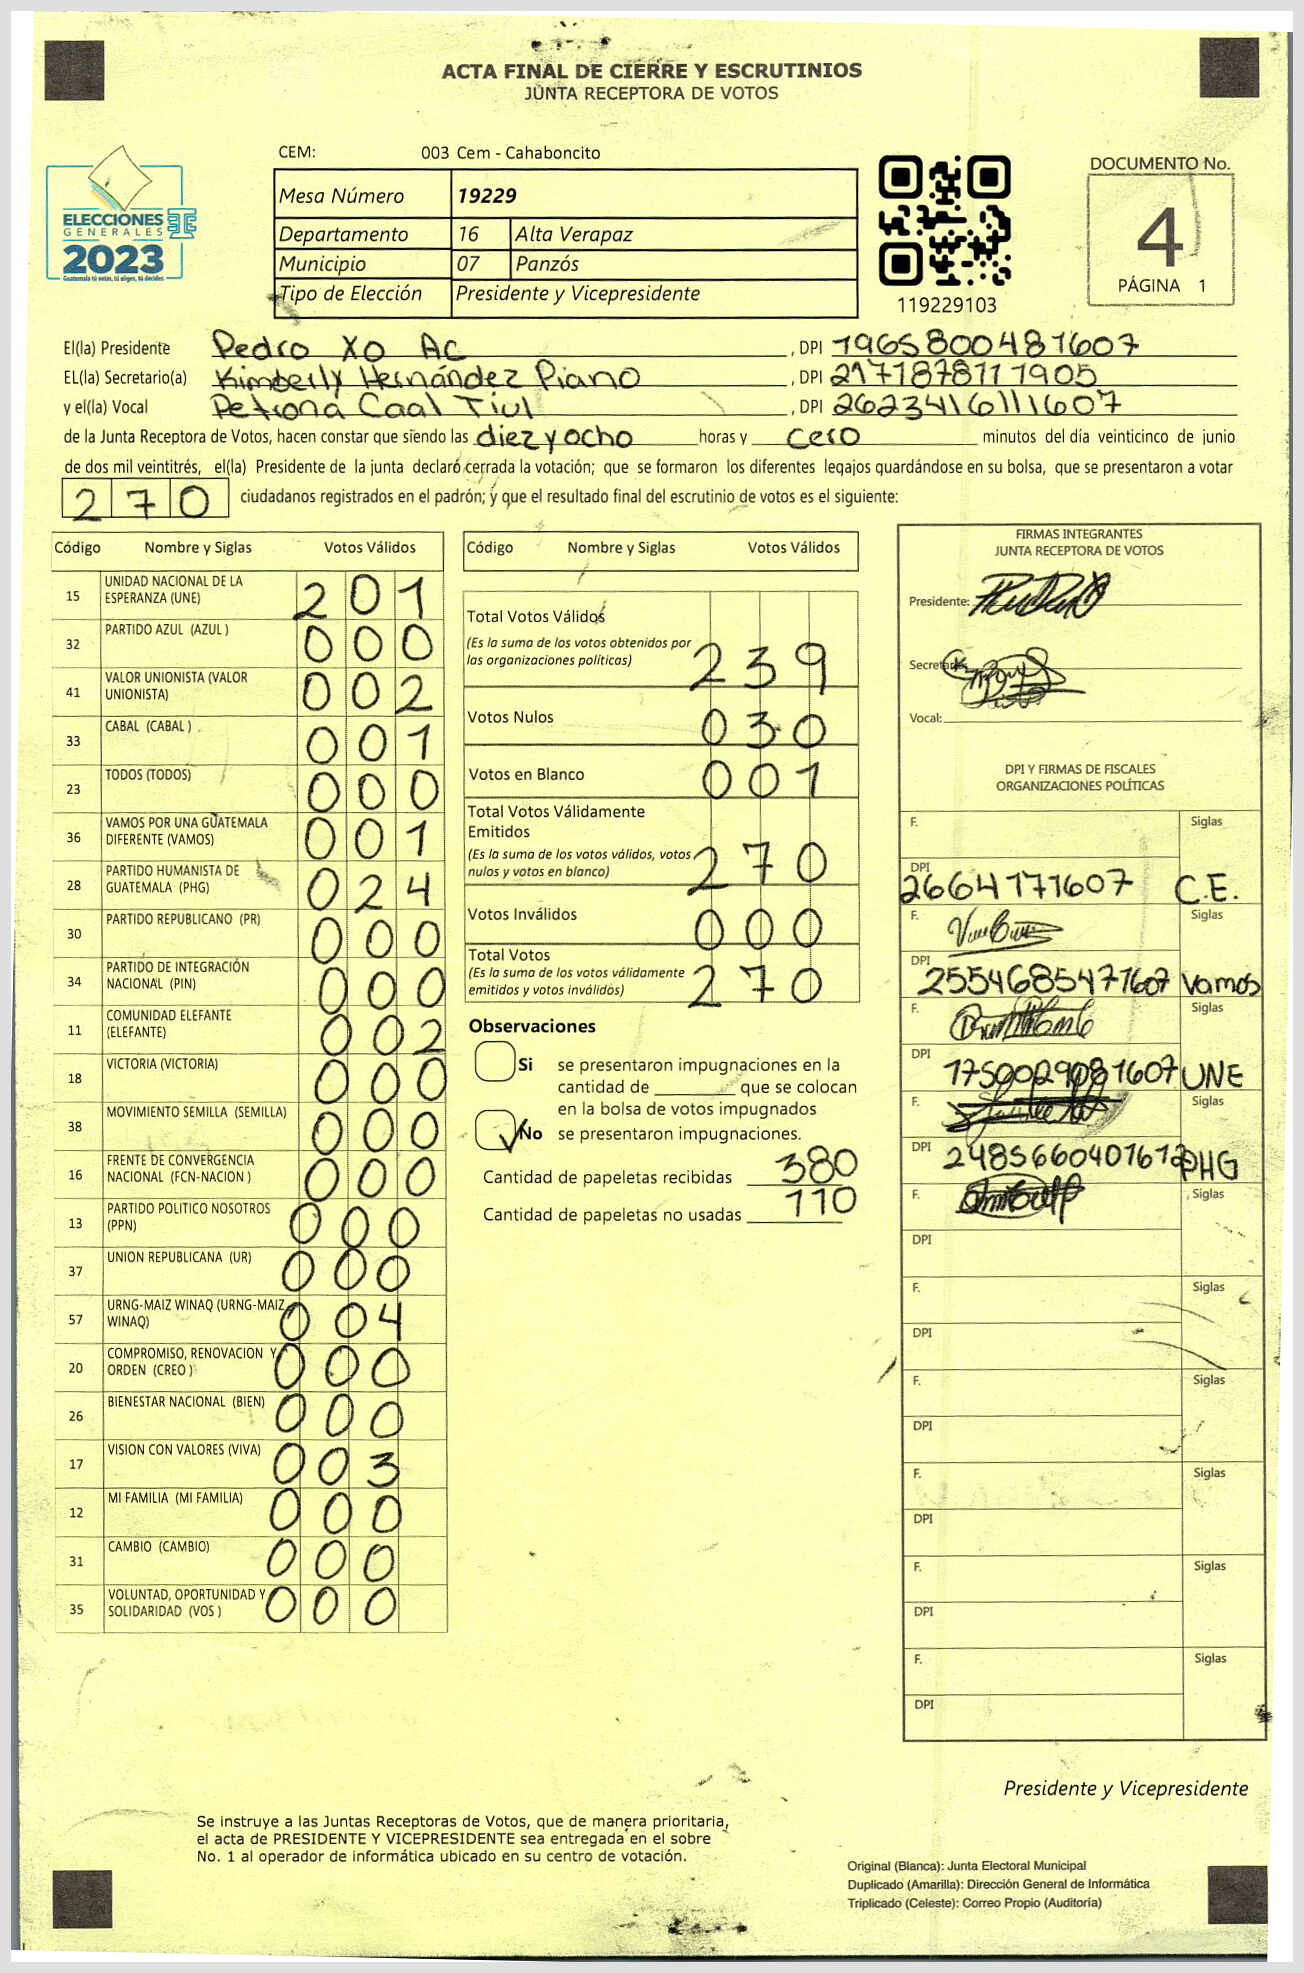 ACTA FINAL DE CIERRE Y ESCRUTINIOS
JUNTA RECEPTORA DE VOTOS
ELECCIONES
GENERALES
2023
Guatemala tú votas, tú eliges, tú decides
CEM: 003 Cem - Cahaboncito
Mesa Número 19229
Departamento 16 Alta Verapaz
Municipio 07 Panzós
Tipo de Elección Presidente y Vicepresidente
119229103
DOCUMENTO No.
4
PÁGINA 1
El(la) Presidente Pedro Xo Ac , DPI 1965800481607
EL(la) Secretario(a) Kimberly Hernández Piano , DPI 2171878111905
y el(la) Vocal Petrona Caal Tiul , DPI 2623416111607
de la Junta Receptora de Votos, hacen constar que siendo las diez y ocho horas y cero minutos del día veinticinco de junio
de dos mil veintitrés, el(la) Presidente de la junta declaró cerrada la votación; que se formaron los diferentes legajos guardándose en su bolsa, que se presentaron a votar
270 ciudadanos registrados en el padrón; y que el resultado final del escrutinio de votos es el siguiente:
Código Nombre y Siglas Votos Válidos
15 UNIDAD NACIONAL DE LA ESPERANZA (UNE) 201
32 PARTIDO AZUL (AZUL ) 000
41 VALOR UNIONISTA (VALOR UNIONISTA) 002
33 CABAL (CABAL ) 001
23 TODOS (TODOS) 000
36 VAMOS POR UNA GUATEMALA DIFERENTE (VAMOS) 001
28 PARTIDO HUMANISTA DE GUATEMALA (PHG) 024
30 PARTIDO REPUBLICANO (PR) 000
34 PARTIDO DE INTEGRACIÓN NACIONAL (PIN) 000
11 COMUNIDAD ELEFANTE (ELEFANTE) 002
18 VICTORIA (VICTORIA) 000
38 MOVIMIENTO SEMILLA (SEMILLA) 000
16 FRENTE DE CONVERGENCIA NACIONAL (FCN-NACION ) 000
13 PARTIDO POLITICO NOSOTROS (PPN) 000
37 UNION REPUBLICANA (UR) 000
57 URNG-MAIZ WINAQ (URNG-MAIZ WINAQ) 004
20 COMPROMISO, RENOVACION Y ORDEN (CREO ) 000
26 BIENESTAR NACIONAL (BIEN) 000
17 VISION CON VALORES (VIVA) 003
12 MI FAMILIA (MI FAMILIA) 000
31 CAMBIO (CAMBIO) 000
35 VOLUNTAD, OPORTUNIDAD Y SOLIDARIDAD (VOS ) 000
Código Nombre y Siglas Votos Válidos
Total Votos Válidos
(Es la suma de los votos obtenidos por
las organizaciones políticas) 239
Votos Nulos 030
Votos en Blanco 001
Total Votos Válidamente
Emitidos
(Es la suma de los votos válidos, votos
nulos y votos en blanco) 270
Votos Inválidos 000
Total Votos
(Es la suma de los votos válidamente
emitidos y votos inválidos) 270
Observaciones
Si se presentaron impugnaciones en la
cantidad de ________ que se colocan
en la bolsa de votos impugnados
No se presentaron impugnaciones.
Cantidad de papeletas recibidas 380
Cantidad de papeletas no usadas 110
FIRMAS INTEGRANTES
JUNTA RECEPTORA DE VOTOS
Presidente:
Secretario:
Vocal:
DPI Y FIRMAS DE FISCALES
ORGANIZACIONES POLÍTICAS
F. Siglas
DPI 2664171607 C.E.
F. Siglas
DPI 2554685471607 Vamos
F. Siglas
DPI 1750029081607 UNE
F. Siglas
DPI 2485660401612 PHG
F. Siglas
DPI
F. Siglas
DPI
F. Siglas
DPI
F. Siglas
DPI
F. Siglas
DPI
F. Siglas
DPI
Presidente y Vicepresidente
Se instruye a las Juntas Receptoras de Votos, que de manera prioritaria,
el acta de PRESIDENTE Y VICEPRESIDENTE sea entregada en el sobre
No. 1 al operador de informática ubicado en su centro de votación.
Original (Blanca): Junta Electoral Municipal
Duplicado (Amarilla): Dirección General de Informática
Triplicado (Celeste): Correo Propio (Auditoría)